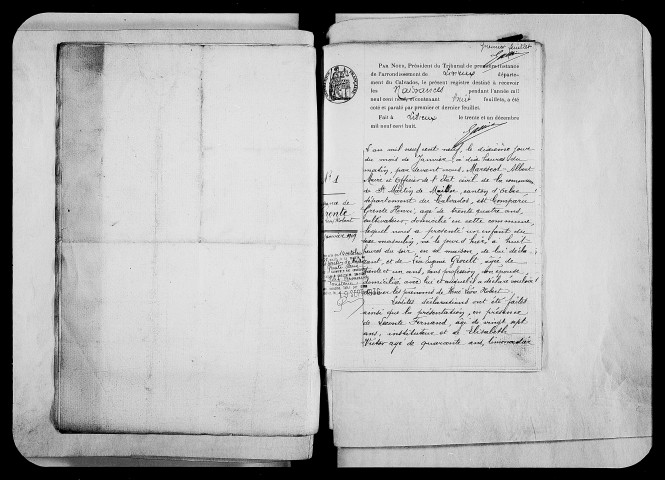 premier feuillet
Par Nous, Président du Tribunal de première instance
de l'arrondissement de Lisieux départe-
ment du Calvados, le présent registre destiné à recevoir
les Naissances pendant l'année mil
neuf cent neuf, et contenant huit feuillets, a été
coté et paraphé par premier et dernier feuillet.
Fait à Lisieux le trente et un décembre
mil neuf cent huit.
N° 1
L'an mil neuf cent neuf, le dixième jour
du mois de Janvier, à dix heures du
matin, par devant nous, Marescot Albert
Maire et Officier de l'Etat civil de la commune
de St Martin de canton d'Orbec
département du Calvados, est comparu
Grente Henri, âgé de trente quatre ans,
cultivateur, domicilié en cette commune
lequel nous a présenté un enfant du
sexe masculin, né le jour d'hier, à huit
heures du soir, en sa maison, de lui décla-
rant, et de Groult, âgée de
trente et un ans, sans profession, son épouse
domiciliée avec lui et auquel il a déclaré vouloir
donner les prénoms de René Léon Robert.
Lesdites déclarations ont été faites
ainsi que la présentation, en présence
de Lecomte Fernand, âgé de vingt sept
ans, instituteur et de Elisabeth
Victor âgé de quarante ans, limonadier
Grente
Robert
janvier 1909